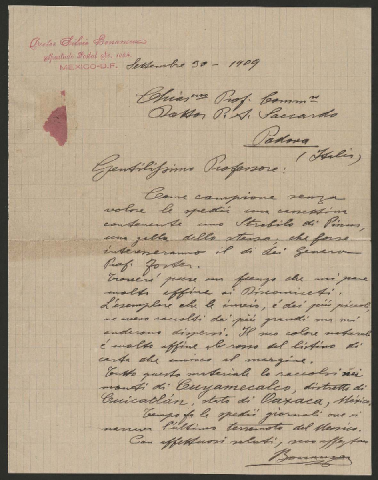 Doctor Silvio Bonansea
Apartado Postal
MEXICO-D.F.
Settembre 30 - 1909
Chiar.mo Prof. Comm.re
Dottor P. A. Saccardo
Padova
(Italia)
Gentilissimo Professore:
Come campione senza
valore le spedii una cassettina
contenente uno Strobilo di Pinus,
una galla dello stesso, che forse
interesseranno il di Lei Genero
Prof.
Troverà pure un fungo che mi pare
molto affine ai Discomiceti:
L'esemplare che le invio, è dei più piccoli,
ne avevo raccolti dei più grandi ma mi
andarono dispersi. Il suo colore naturale
è molto affine al rosso del listino di
carta che unisco al margine.
Tutto questo materiale lo raccolsi nei
monti di Cuyamecalco, distretto di
Cuicatlán, stato di Oaxaca, México.
Tempo fa le spedii giornali che
narravano l'ultimo terremoto del Messico.
Con affettuosi saluti, suo
Bonansea